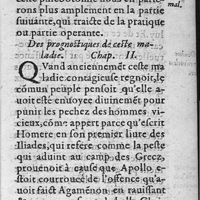 rons parleronsnous en par-
plus amplement en la partie
suiuante, qui traicte de la pratique
ou partie operante.
Des prognostiques de ceste ma-
ladie. Chap. II.
QVand anciennemẽt ceste ma
ladie contagieuse regnoit, le
cõmun peuple pensoit qu'elle a-
uoit esté enuoyee diuinemẽt pour
punir les pechez des hommes vi-
cieux, cõme appert parce qu'escrit
Homere en son premier liure des
Iliades, qui refere comme la peste
qui aduint au camp des Grecz,
prouenoit à cause que Apollo e-
stoit courroucé de l'offence qu'a-
uoit faict Agamẽnõ en rauissant
mal.